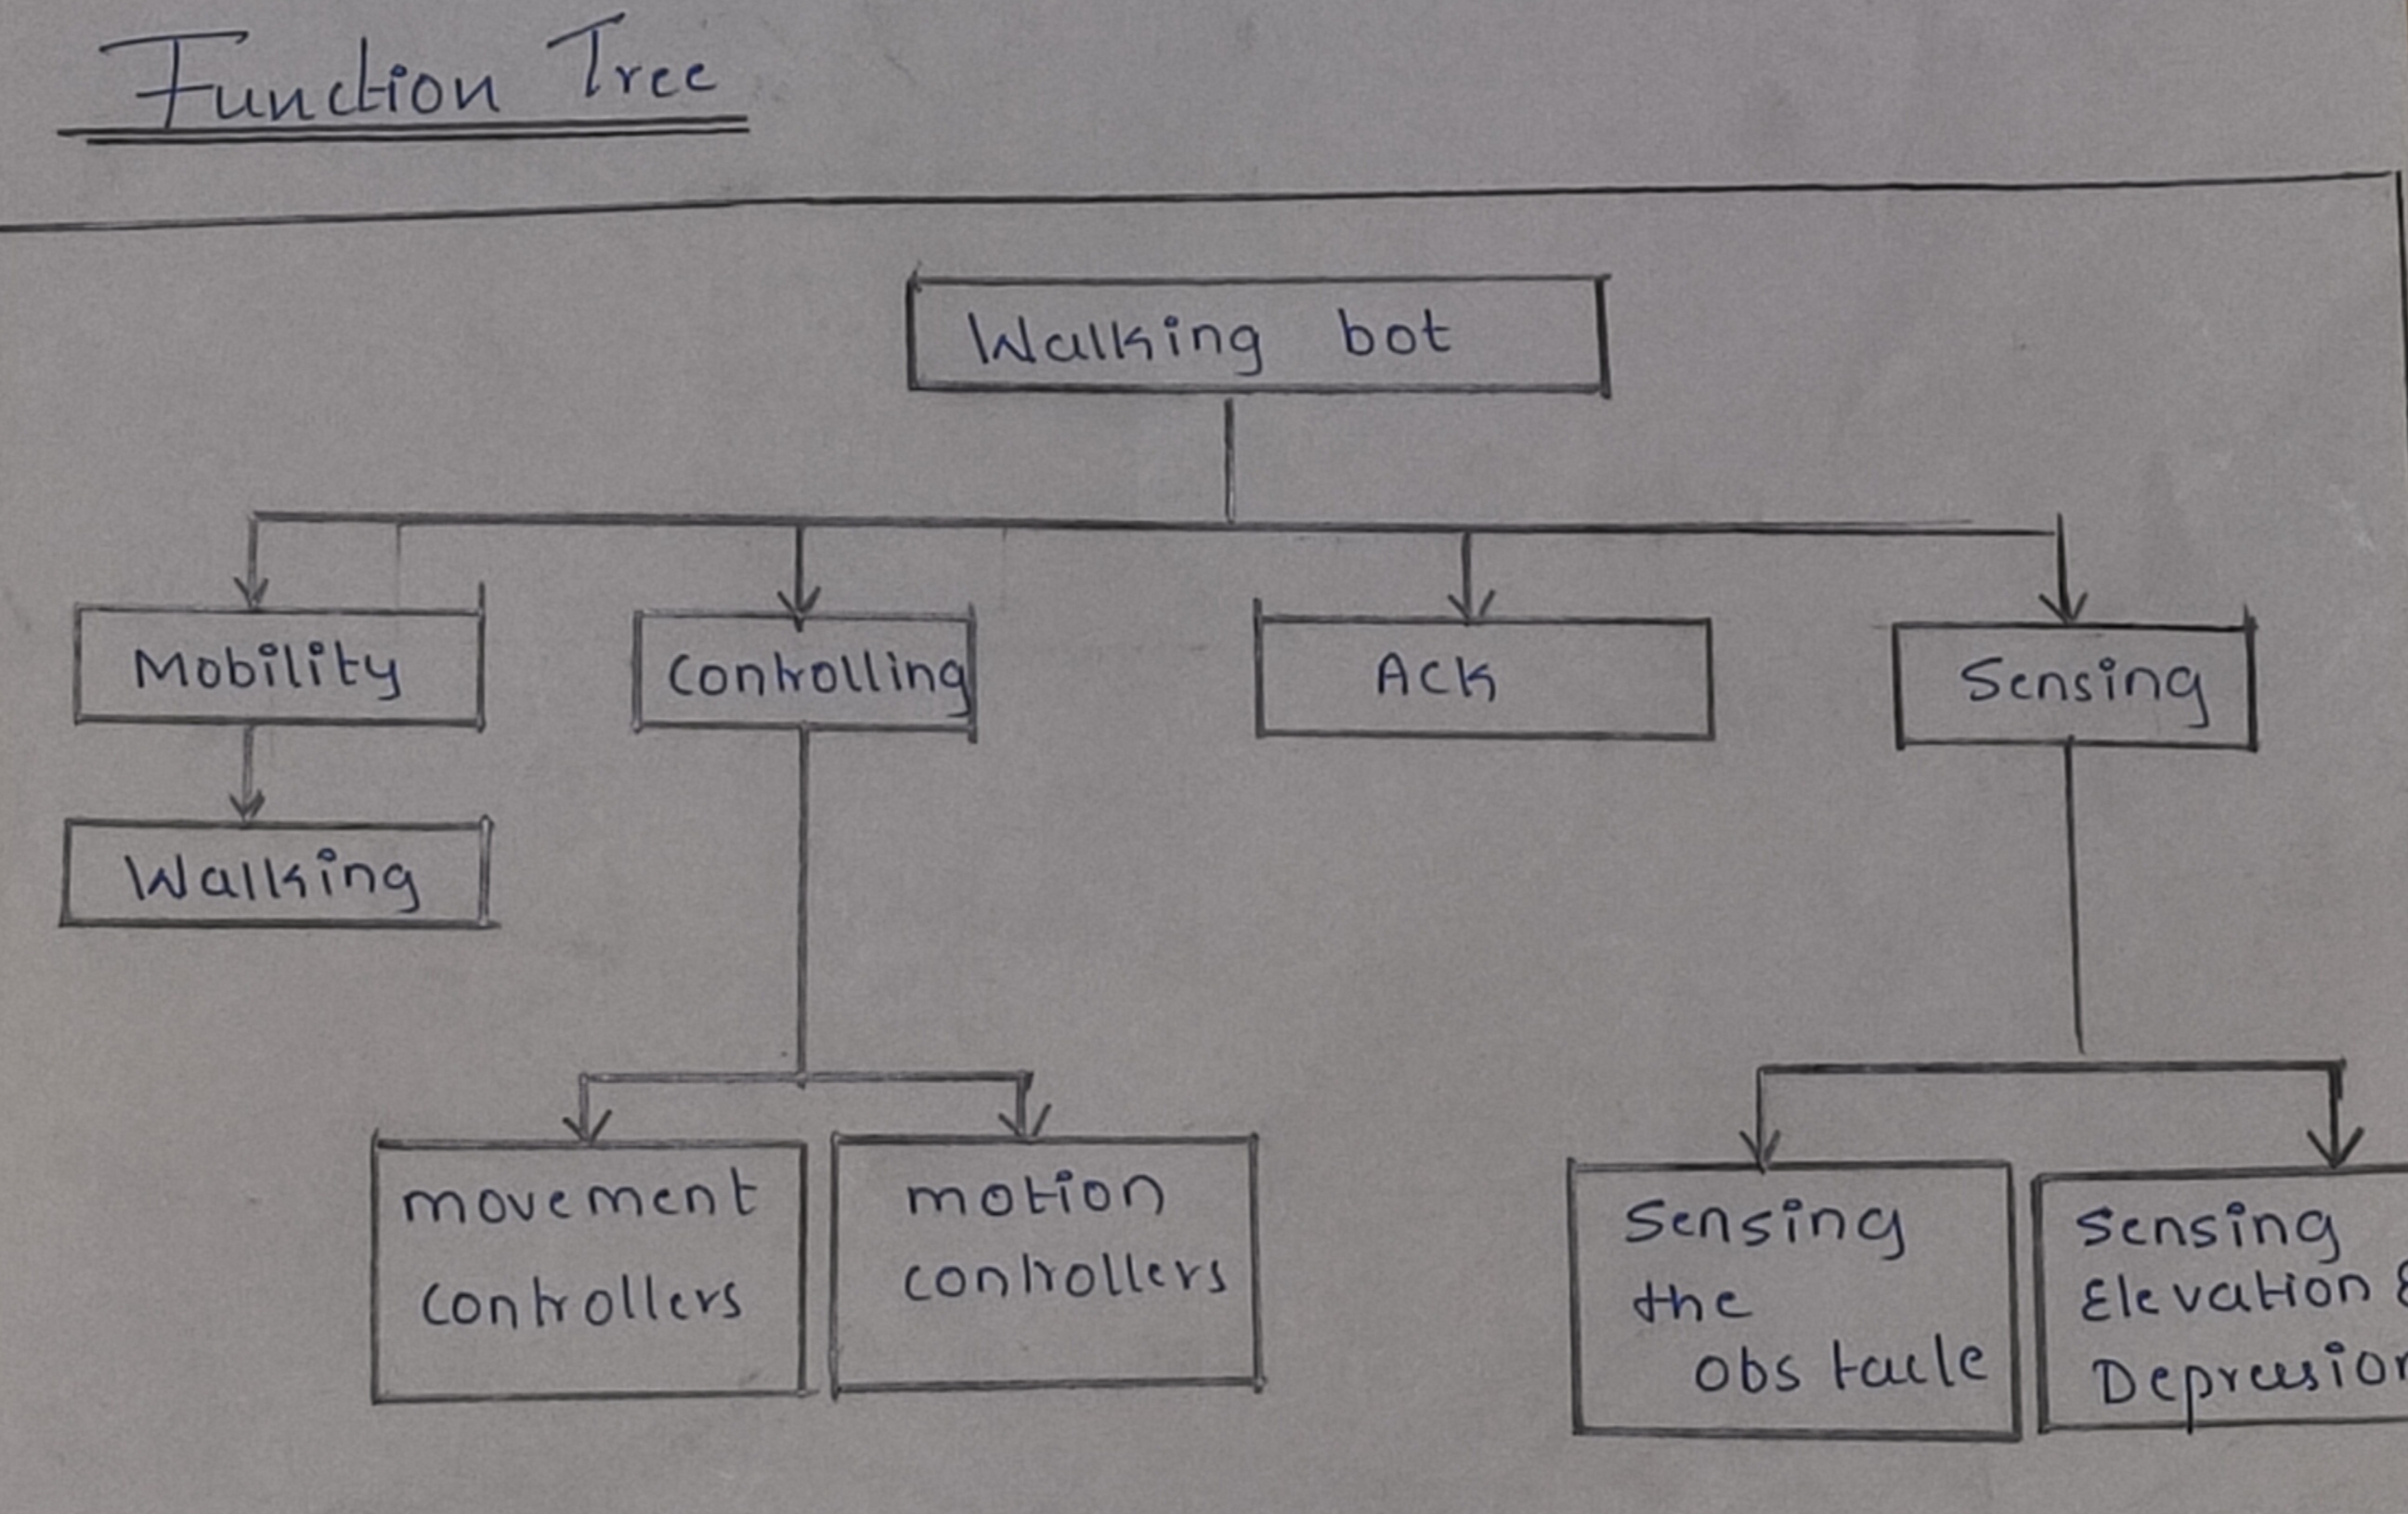 Function Tree
Walking bot
Mobility
Controlling
Ack
Sensing
Walking
movement
controllers
motion
controllers
Sensing
the
obstacle
Sensing
Elevation &
Depression